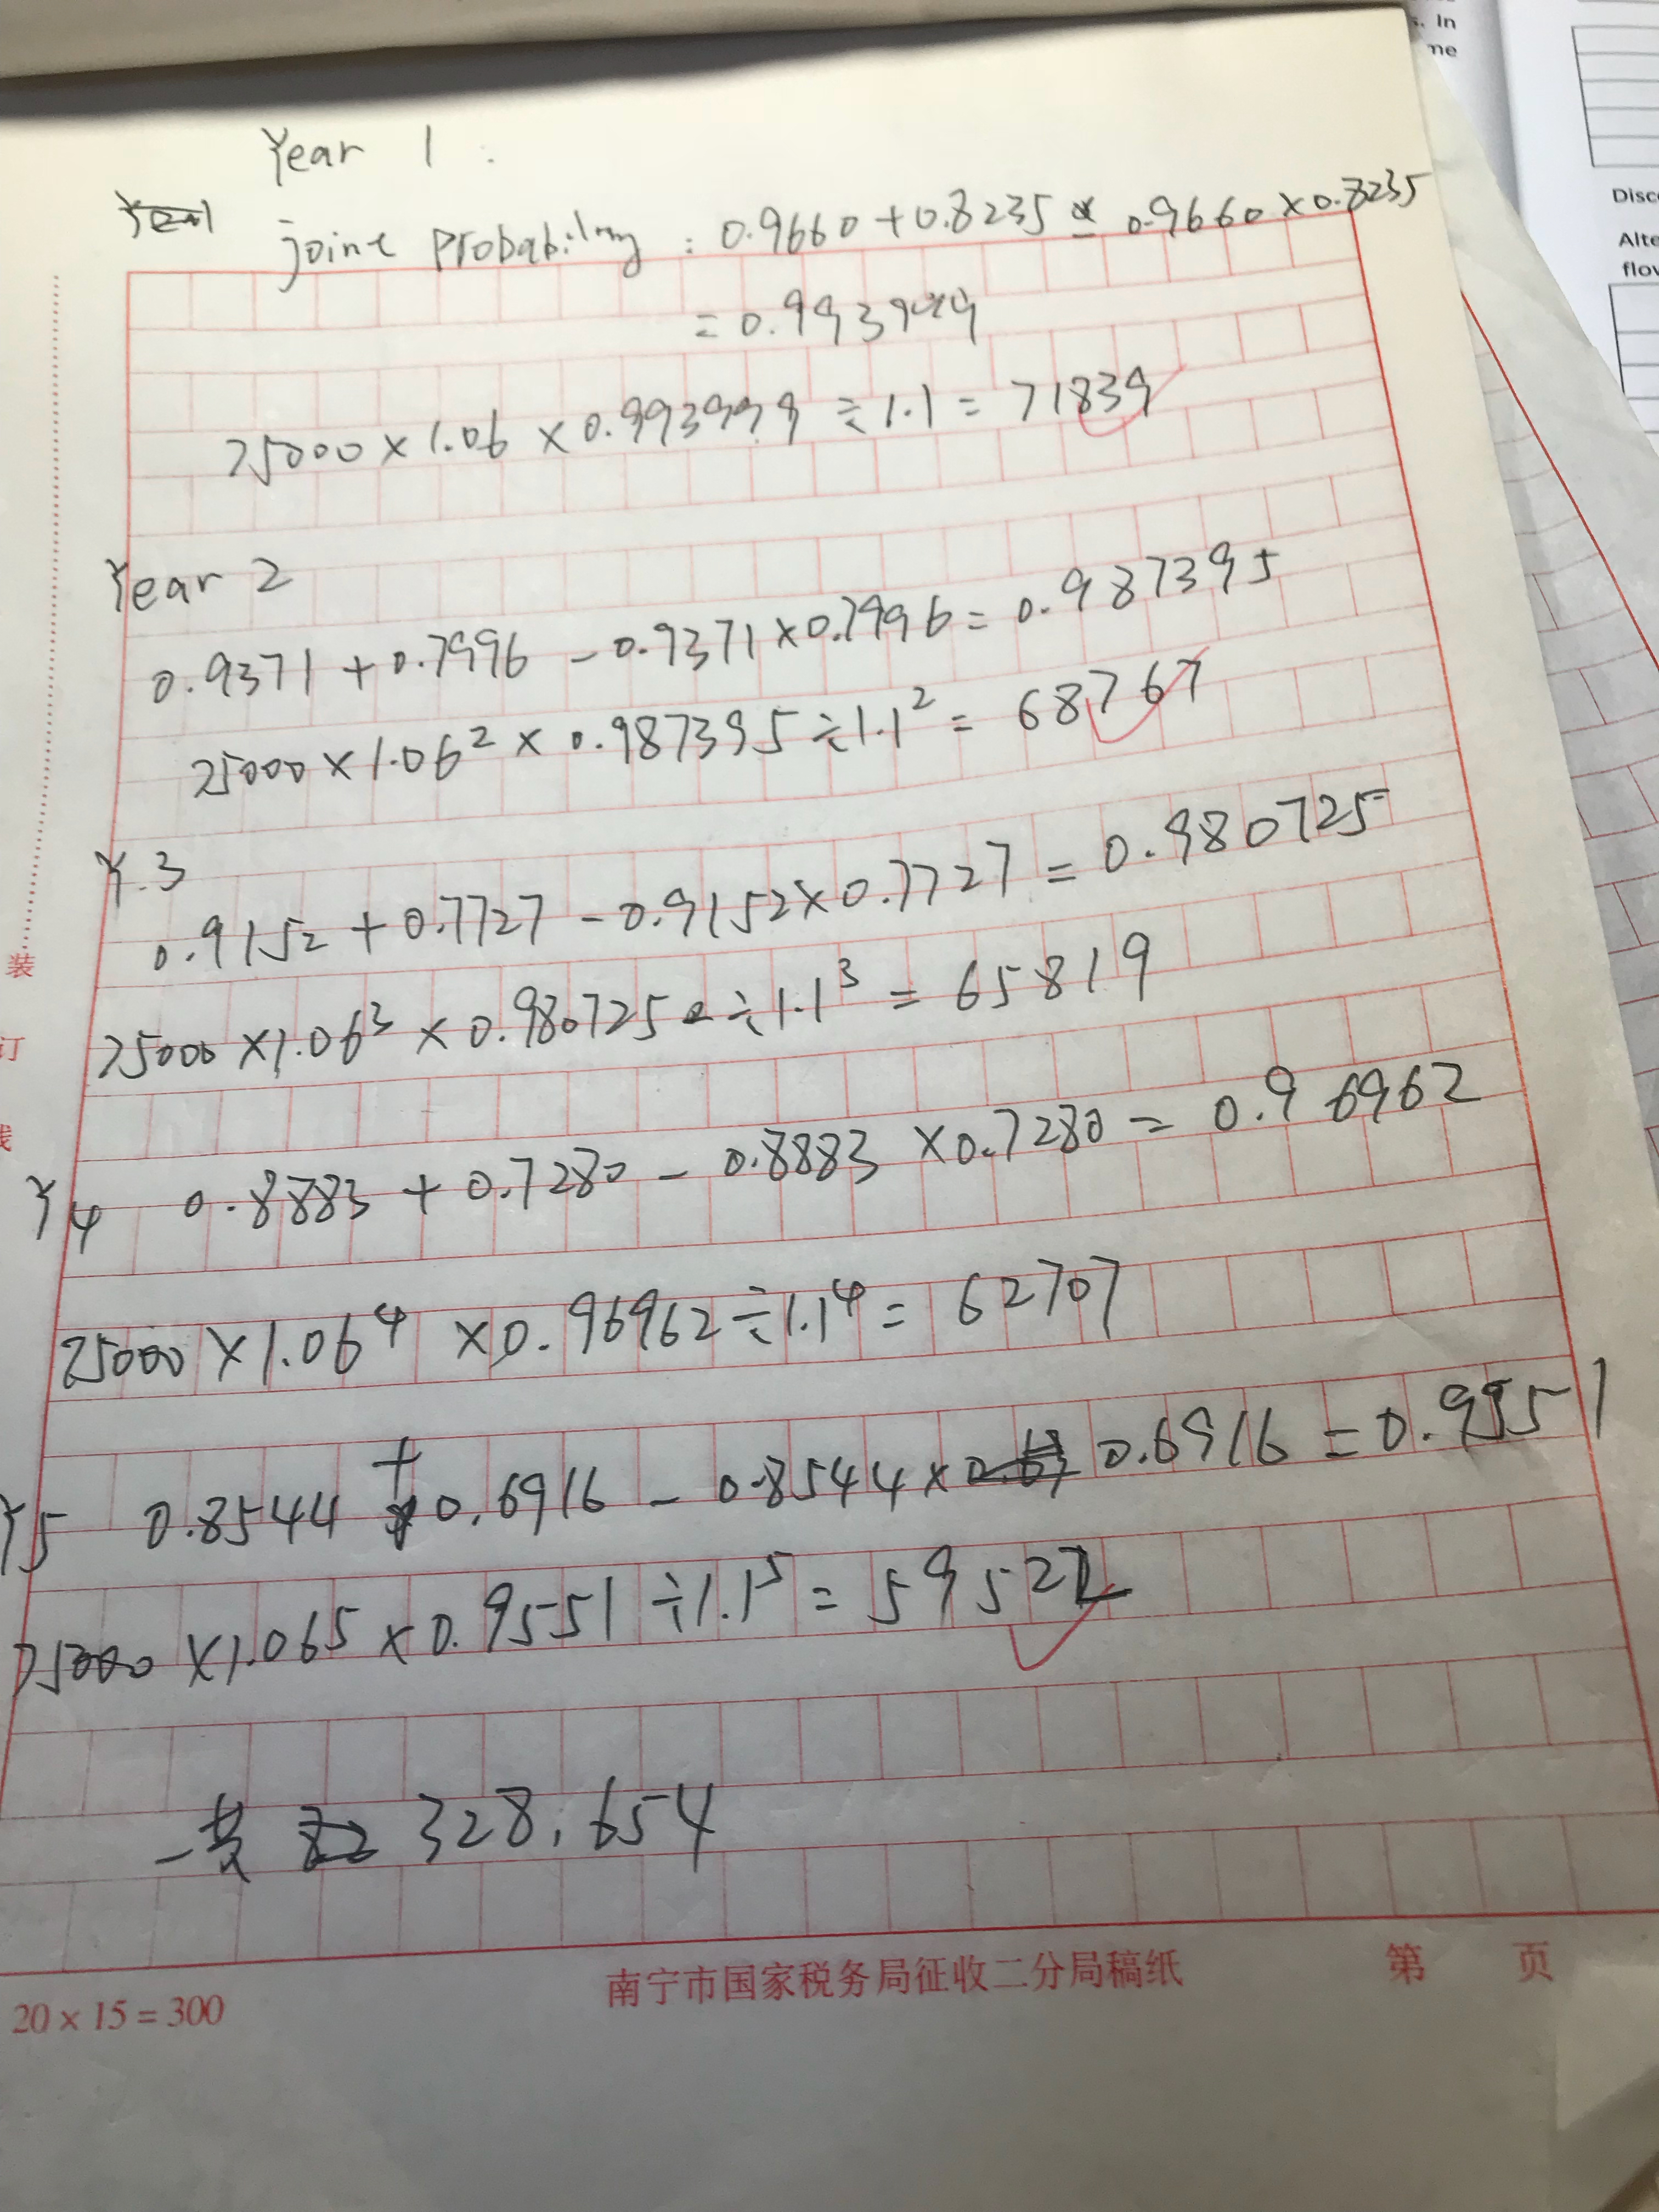 s. In
me
Disc
Alte
flow
Year 1 :
joint Probability : 0.9660 + 0.8235 - 0.9660 × 0.8235
= 0.993999
75000 × 1.06 × 0.993999 ÷ 1.1 = 71839
Year 2
0.9371 + 0.7996 - 0.9371 × 0.7996 = 0.987395
75000 × 1.06² × 0.987395 ÷ 1.1² = 68767
Y.3
0.9152 + 0.7727 - 0.9152 × 0.7727 = 0.980725
75000 × 1.06³ × 0.980725 ÷ 1.1³ = 65819
Y4 0.8883 + 0.7280 - 0.8883 × 0.7280 = 0.96962
75000 × 1.06⁴ × 0.96962 ÷ 1.1⁴ = 62707
Y5 0.8544 + 0.6916 - 0.8544 × 0.6916 = 0.9551
75000 × 1.065 × 0.9551 ÷ 1.1⁵ = 59522
一共 328,654
装
订
线
20 × 15 = 300
南宁市国家税务局征收二分局稿纸
第 页